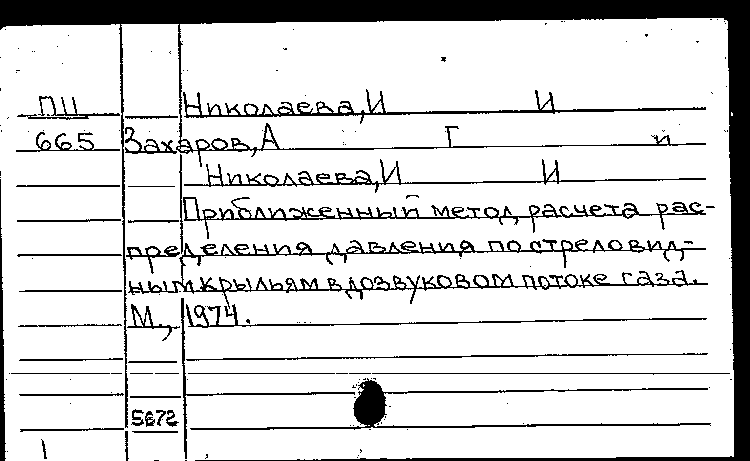 П11 Николаева, И И
665 Захаров, А Г и
Николаева, И И
Приближенный метод расчета рас-
пределения давления по стреловид-
ным крыльям в дозвуковом потоке газа.
М., 1974.
5672